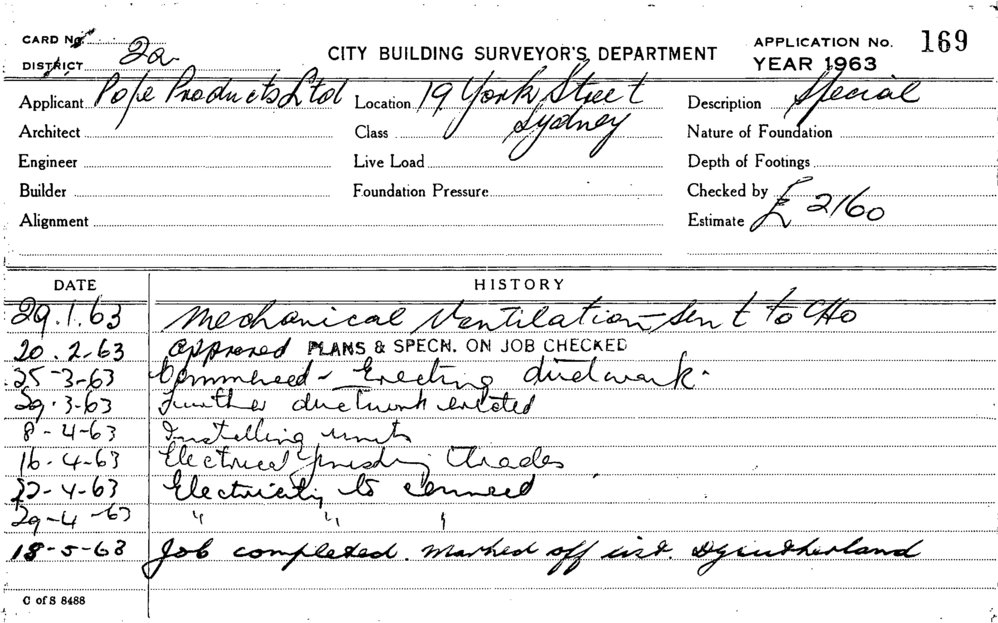 CARD No.
DISTRICT 2a
CITY BUILDING SURVEYOR'S DEPARTMENT
APPLICATION No. 169
YEAR 1963
Applicant Pope Products Ltd Location 19 York Street Description Special
Architect Class Sydney Nature of Foundation
Engineer Live Load Depth of Footings
Builder Foundation Pressure Checked by
Alignment Estimate £ 2160
DATE HISTORY
29.1.63 Mechanical Ventilation - sent to CHO
20.2.63 approved PLANS & SPECN. ON JOB CHECKED
25-3-63 Commenced - Erecting ductwork.
29.3-63 Further ductwork erected
8-4-63 Installing units
16-4-63 Electrical finishing trades
22-4-63 Electricity to connect
29-4-63 " " "
18-5-63 Job completed. marked off list.
C of S 8488